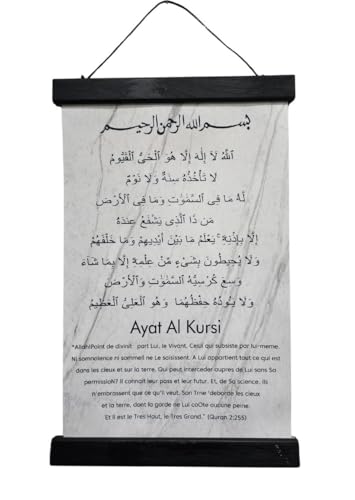 بسم الله الرحمن الرحيم
اللَّهُ لَا إِلَٰهَ إِلَّا هُوَ الْحَيُّ الْقَيُّومُ
لَا تَأْخُذُهُ سِنَةٌ وَلَا نَوْمٌ
لَهُ مَا فِي السَّمَٰوَٰتِ وَمَا فِي الْأَرْضِ
مَن ذَا الَّذِي يَشْفَعُ عِندَهُ
إِلَّا بِإِذْنِهِ ۚ يَعْلَمُ مَا بَيْنَ أَيْدِيهِمْ وَمَا خَلْفَهُمْ
وَلَا يُحِيطُونَ بِشَيْءٍ مِّنْ عِلْمِهِ إِلَّا بِمَا شَاءَ
وَسِعَ كُرْسِيُّهُ السَّمَٰوَٰتِ وَالْأَرْضَ
وَلَا يَئُودُهُ حِفْظُهُمَا وَهُوَ الْعَلِيُّ الْعَظِيمُ
Ayat Al Kursi
"Allah!Point de divinit part Lui, le Vivant, Celui qui subsiste par lui-meme.
Ni somnolence ni sommeil ne Le saisissent. A Lui appartient tout ce qui est
dans les cieux et sur la terre. Qui peut interceder aupres de Lui sans Sa
permissioN? Il connaIt leur pass et leur futur. Et, de Sa science, ils
n'embrossent que ce qu'Il veut. Son Trne 'deborde les cieux
et la terre, dont la garde de Lui coOte oucune peine.
Et Il est le Tres Haut, le-Tres Grand." (Quran 2:255)